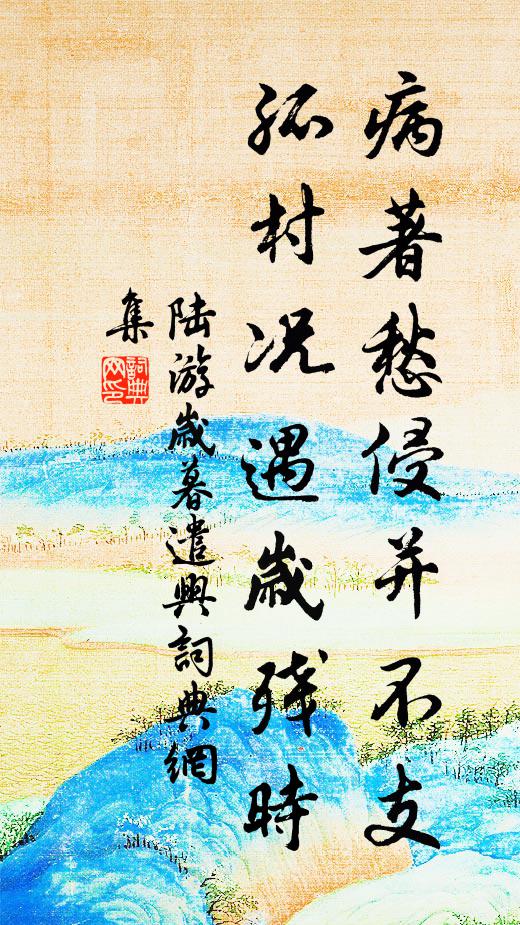 病著愁侵并不支
孤村况遇歲殘時
陆游歲暮遣興詞典網
集
詞典
网印